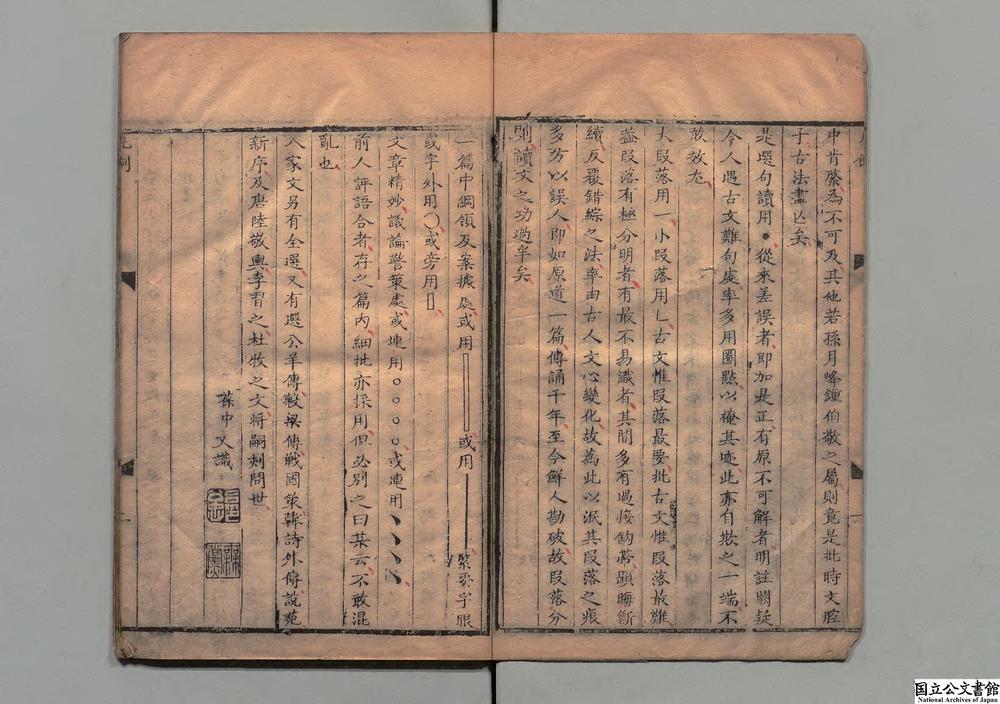 中肯綮為不可及其他若孫月峰鍾伯敬之屬則竟是批時文腔
子古法盡亾矣
是選句讀用●從來差誤者即加是正有原不可解者明註闕疑
今人遇古文難句處率多用圈點以掩其迹此亦自欺之一端不
敢效尤
大段落用一小段落用乚古文惟段落最要批古文惟段落最難
蓋段落有極分明者有最不易識者其間多有過接鈎帶顯晦斷
續反覆錯綜之法率由古人文心變化故為此以泯其段落之痕
多方以誤人即如原道一篇傳誦千年至今鮮人勘破故段落分
則讀文之功過半矣
一篇中綱領及案據處或用 或用 緊要字眼
或字外用○或旁用▯
文章精妙議論警策處或連用○○○○或連用丶丶丶丶
前人評語合者存之篇內細批亦採用但必別之曰某云不敢混
亂也
八家文另有全選又有選公羊傳穀梁傳戰國策韓詩外傳說苑
新序及唐陸敬輿李習之杜牧之文將嗣刻問世
蓀中又識
凡例
一
国立公文書館
National Archives of Japan